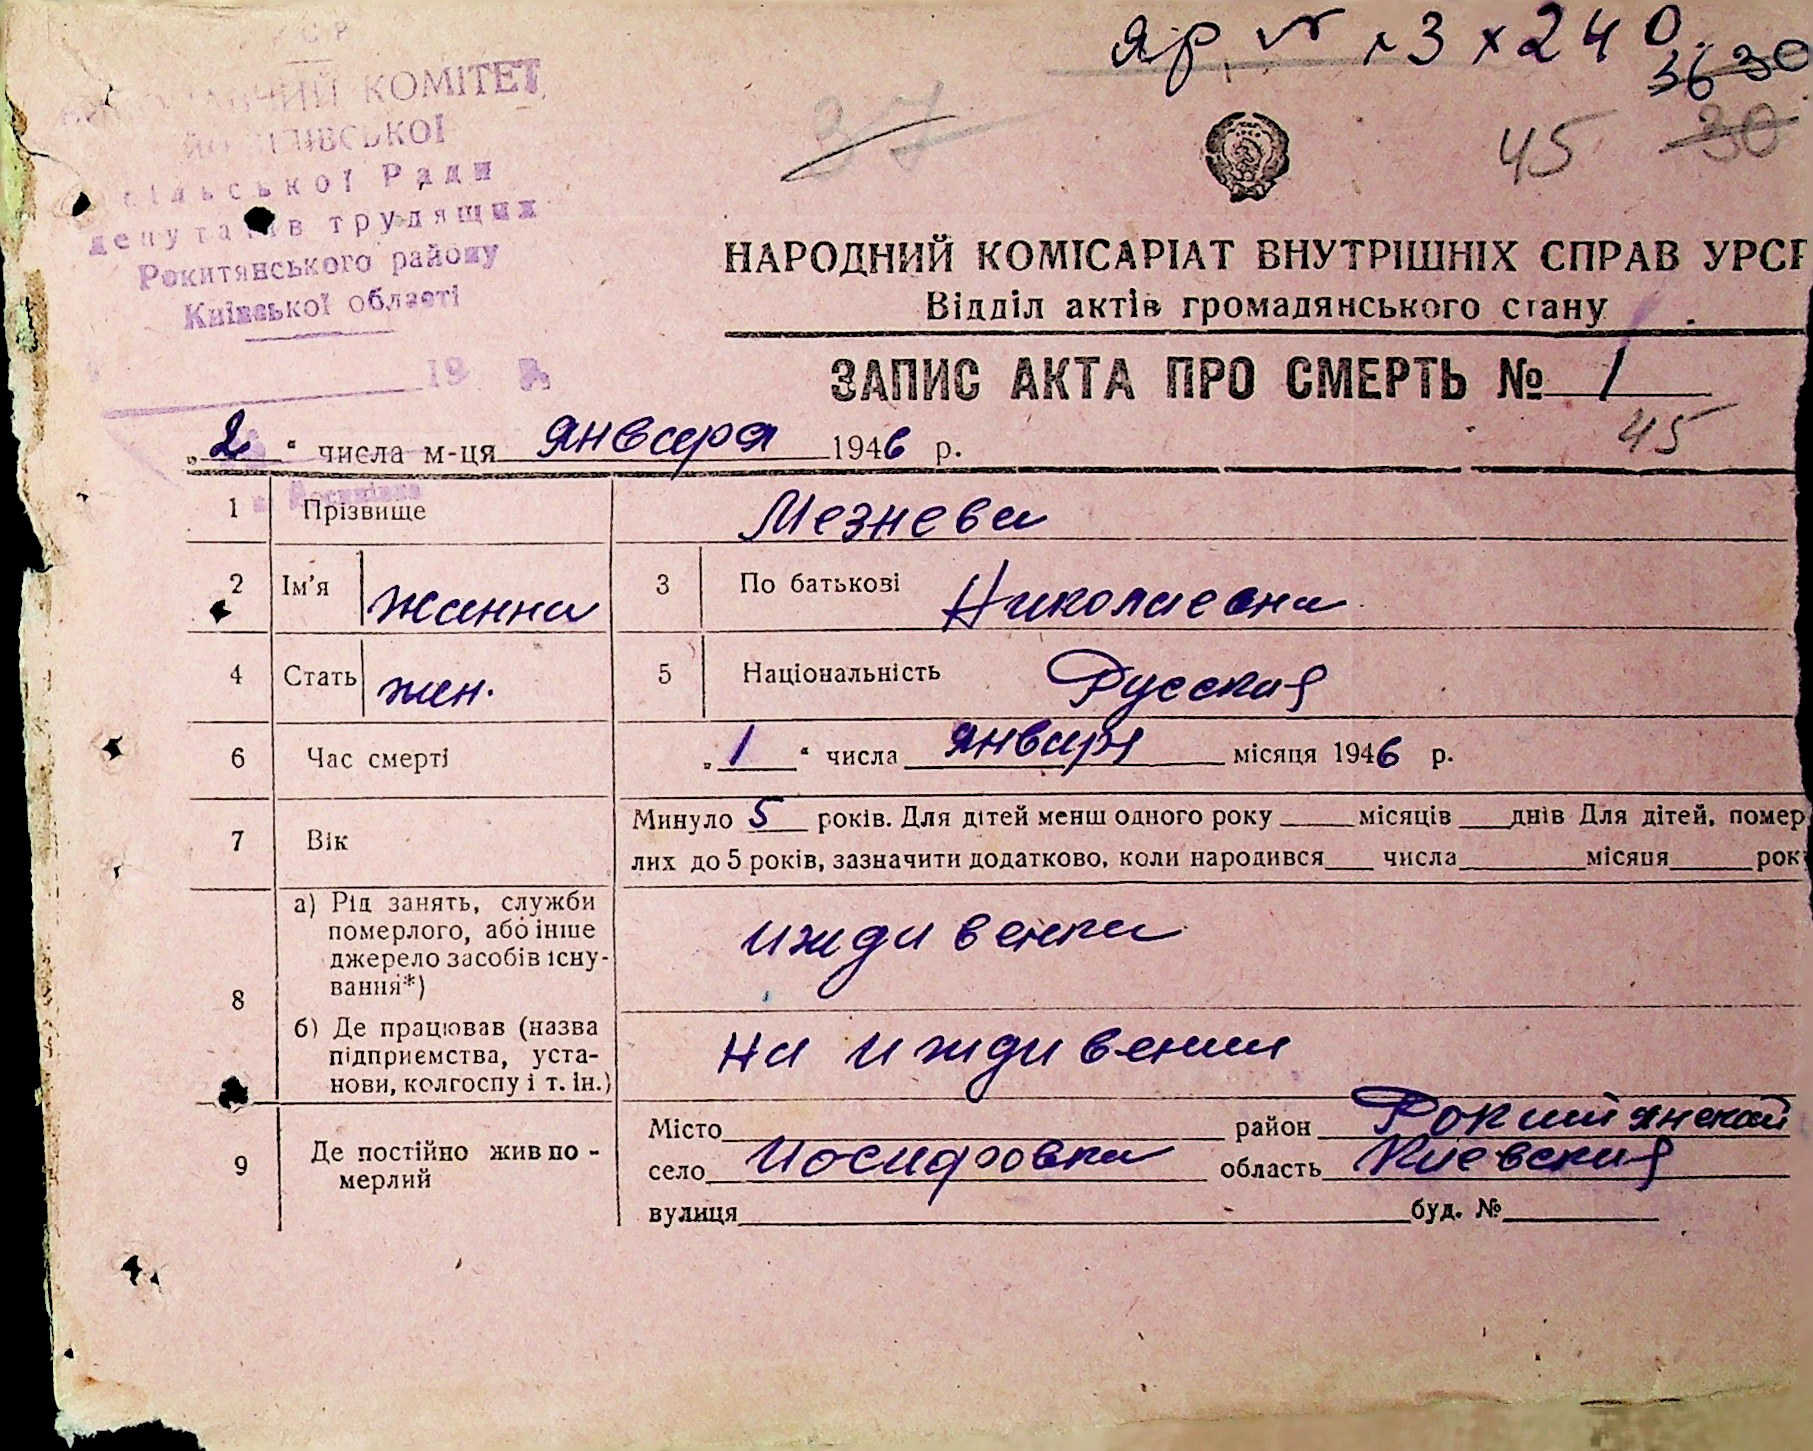 яр. № 13 х 240
36 30
37
45 30
КОМІТЕТ
сільської Ради
депутатів трудящих
Рокитянського району
Київської області
19
НАРОДНИЙ КОМІСАРІАТ ВНУТРІШНІХ СПРАВ УРСР
Відділ актів громадянського стану
ЗАПИС АКТА ПРО СМЕРТЬ № 1
45
„2“ числа м-ця января 1946 р.
1 Прізвище Мезнева
2 Ім’я Жанна 3 По батькові Николаевна
4 Стать жен. 5 Національність Русская
6 Час смерті „1“ числа января місяця 1946 р.
7 Вік Минуло 5 років. Для дітей менш одного року місяців днів Для дітей, помер
лих до 5 років, зазначити додатково, коли народився числа місяця рок
8 а) Рід занять, служби
померлого, або інше
джерело засобів існу-
вання*)
иждивенка
б) Де працював (назва
підприємства, уста-
нови, колгоспу і т. ін.)
на иждивении
9 Де постійно жив по-
мерлий
Місто район Рокитянский
село Иосиповка область Киевская
вулиця буд. №